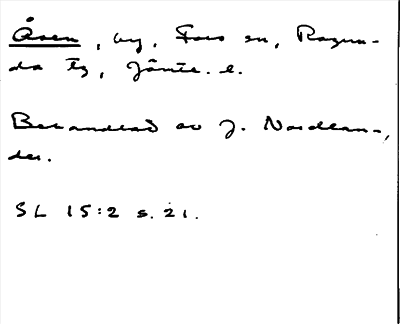 Åsen, by, Fors sn, Ragun-
da tg, Jämtl. l.
Behandlad av J. Nordlan-
der.
SL 15:2 s. 21.